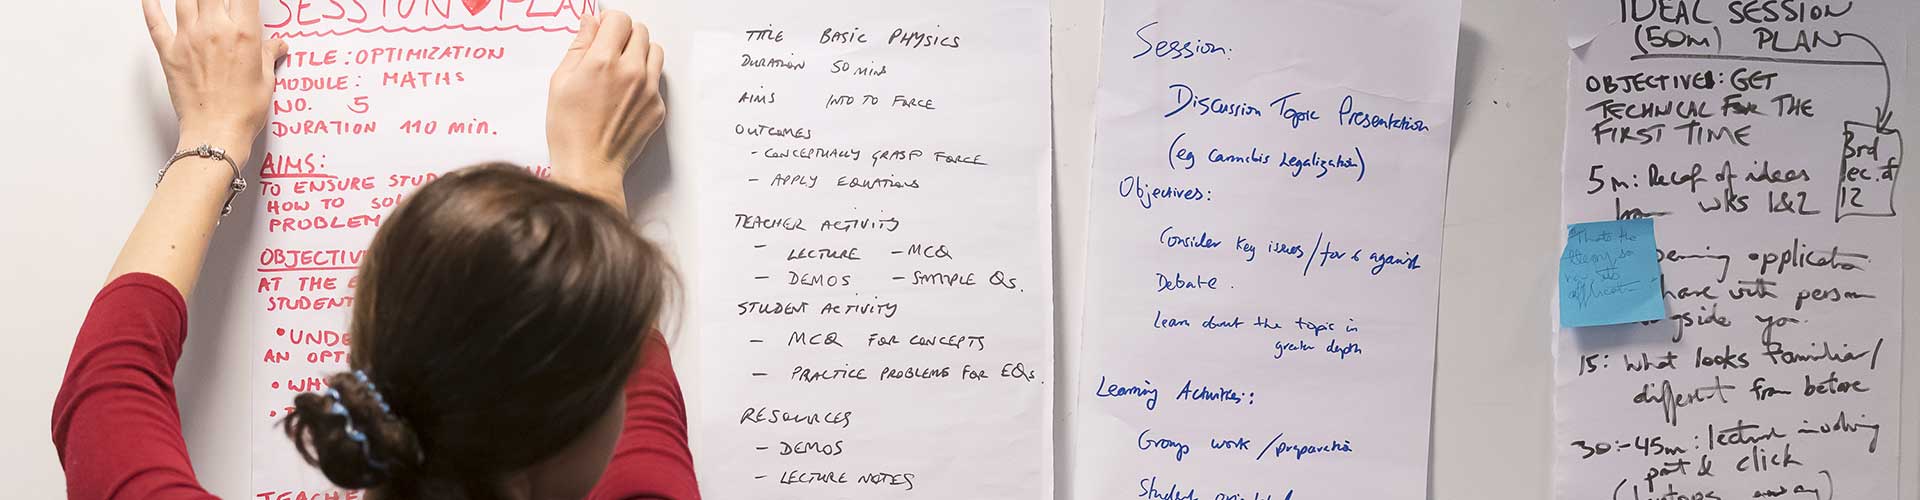 SESSION PLAN
TITLE: OPTIMIZATION
MODULE: MATHS
NO. 5
DURATION 110 min.
AIMS:
TO ENSURE
HOW TO
PROBLEM
OBJECTIV
AT THE
STUDENT
• UNDE
AN OPT
• WHY
TEACHE
TITLE BASIC PHYSICS
DURATION 50 MINS
AIMS INTO TO FORCE
OUTCOMES
- CONCEPTUALLY GRASP FORCE
- APPLY EQUATIONS
TEACHER ACTIVITY
- LECTURE - MCQ
- DEMOS - SAMPLE QS.
STUDENT ACTIVITY
- MCQ FOR CONCEPTS
- PRACTICE PROBLEMS FOR EQS.
RESOURCES
- DEMOS
- LECTURE NOTES
Session:
Discussion Topic Presentation
(eg Cannabis Legalization)
Objectives:
Consider key issues/for & against
Debate.
Learn about the topic in
greater depth
Learning Activities:
Group work/preparation
Student
IDEAL SESSION
(50m) PLAN
OBJECTIVES: GET
TECHNICAL FOR THE
FIRST TIME
3rd
lec. of
12
5m: Recap of ideas
from wks 1&2
That's the
theory so
application
share with person
alongside you.
15: What looks familiar/
different from before
30:-45m: lecture involving
click